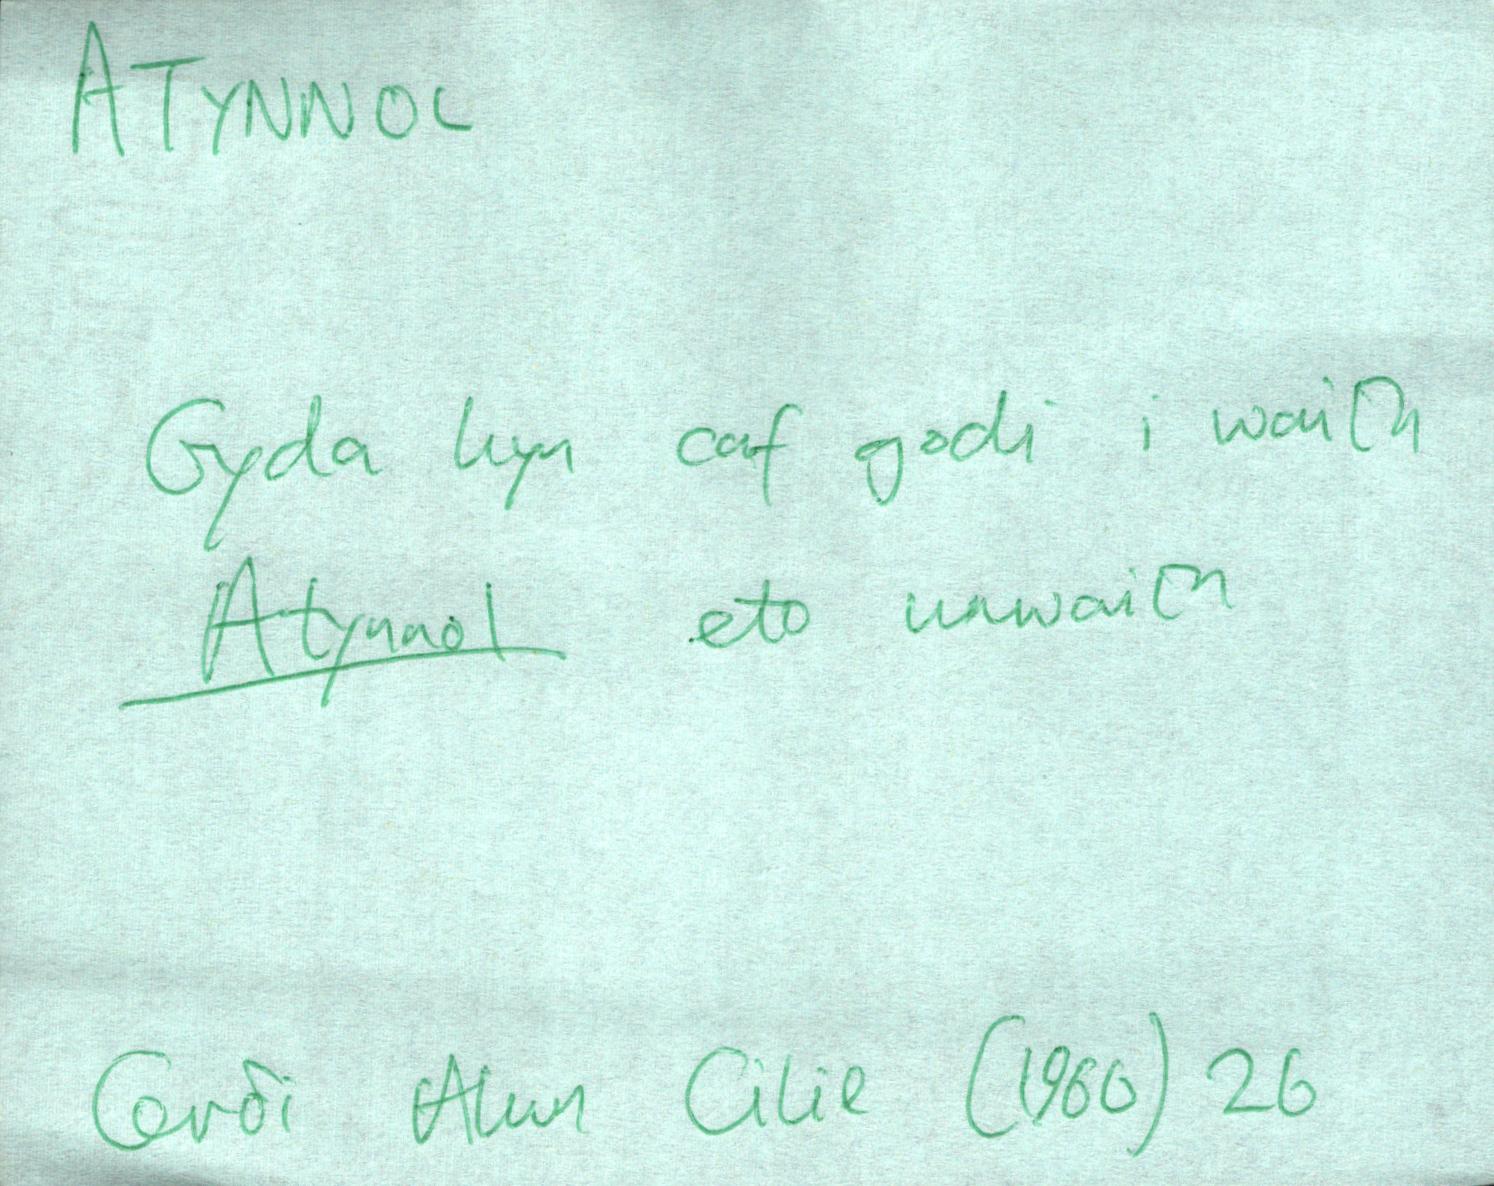 ATYNNOL
Gyda hyn caf godi i waith
Atynnol eto unwaith
Cerδi Alun Cilie (1960) 26